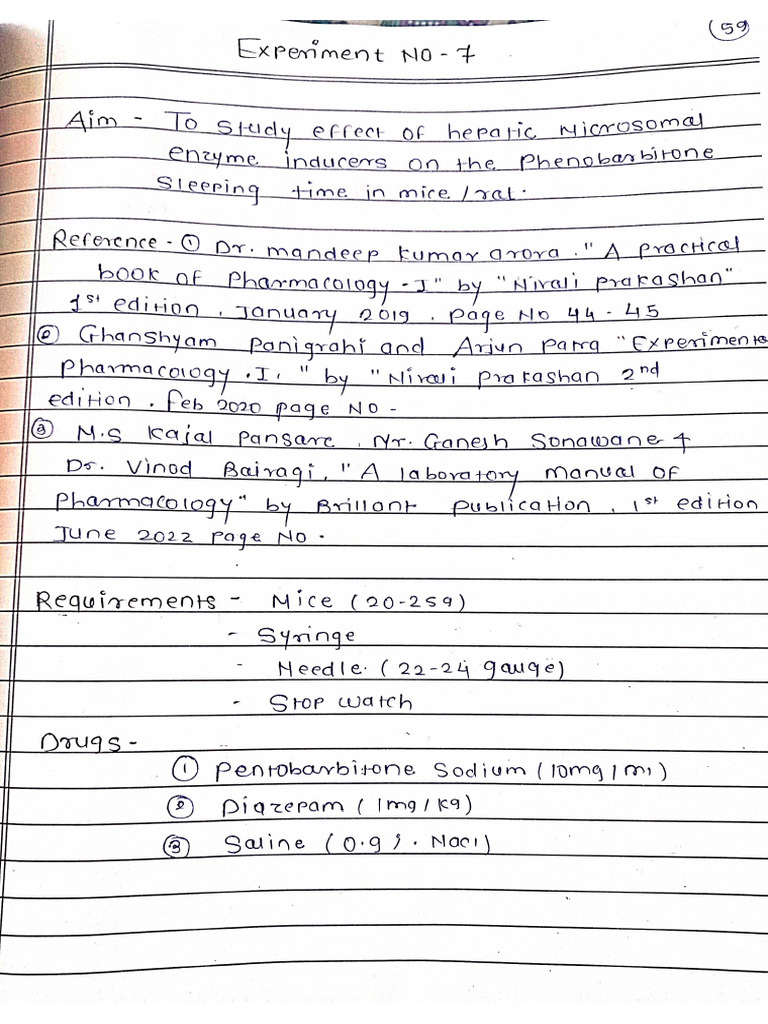 59
Experiment NO - 7
Aim - To study effect of hepatic Microsomal
enzyme inducers on the Phenobarbitone
Sleeping time in mice / rat.
Reference - ① Dr. mandeep kumar arora. "A practical
book of Pharmacology - I" by "Nirali prakashan"
1st edition, January 2019. page No 44 - 45
② Ghanshyam Panigrahi and Arjun patra "Experimenta
Pharmacology. I. " by "Nirali prakashan 2nd
edition. feb 2020 page NO -
③ M.S Kajal Pansare, Mr. Ganesh Sonawane &
Dr. Vinod Bairagi, "A laboratory manual of
Pharmacology" by Brillant publication, 1st edition
June 2022 page No.
Requirements - Mice (20-25g)
- Syringe
- Needle. (22-24 gauge)
- Stop watch
Drugs -
① Pentobarbitone Sodium (10mg/ml)
② Diazepam (1mg/kg)
③ Saline (0.9 %. Nacl)